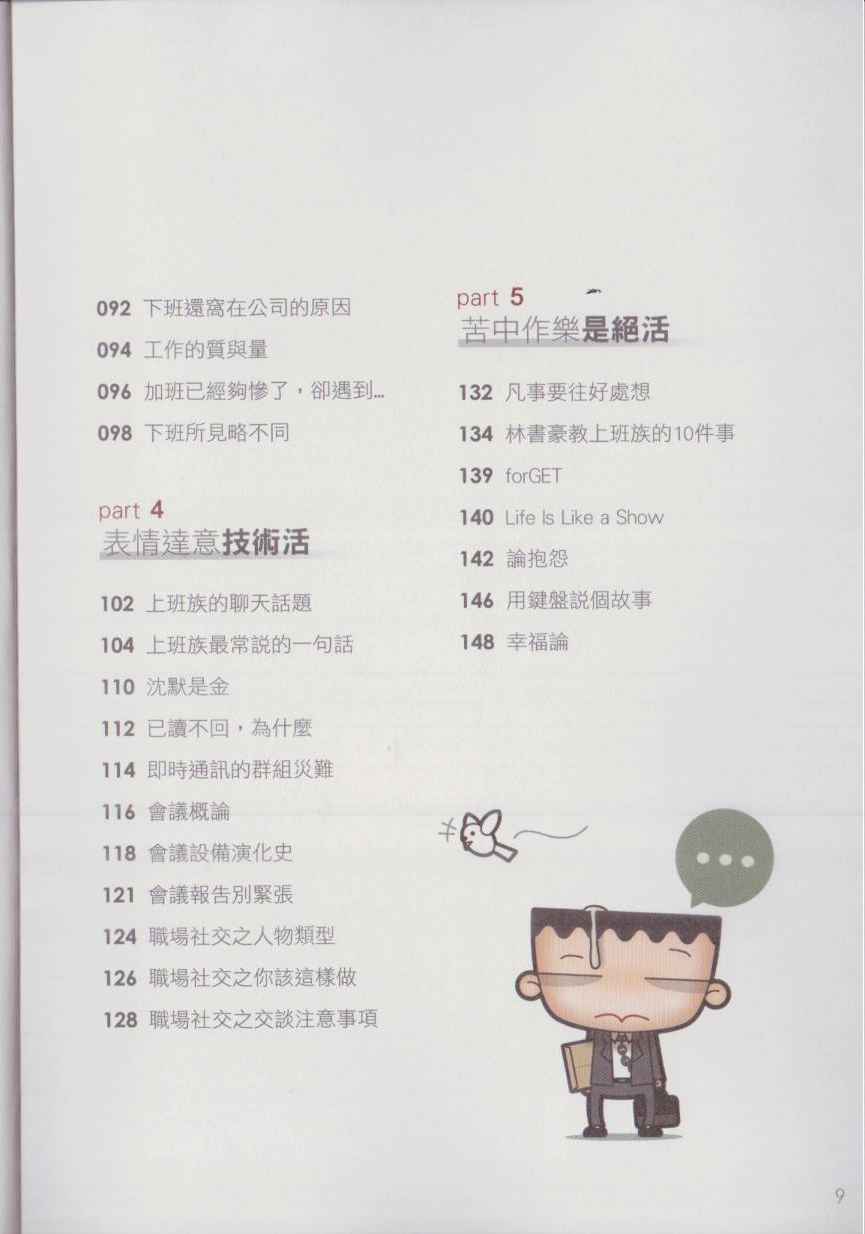 092 下班還窩在公司的原因
094 工作的質與量
096 加班已經夠慘了，卻遇到...
098 下班所見略不同
part 4
表情達意技術活
102 上班族的聊天話題
104 上班族最常說的一句話
110 沈默是金
112 已讀不回，為什麼
114 即時通訊的群組災難
116 會議概論
118 會議設備演化史
121 會議報告別緊張
124 職場社交之人物類型
126 職場社交之你該這樣做
128 職場社交之交談注意事項
part 5
苦中作樂是絕活
132 凡事要往好處想
134 林書豪教上班族的10件事
139 forGET
140 Life Is Like a Show
142 論抱怨
146 用鍵盤說個故事
148 幸福論
9